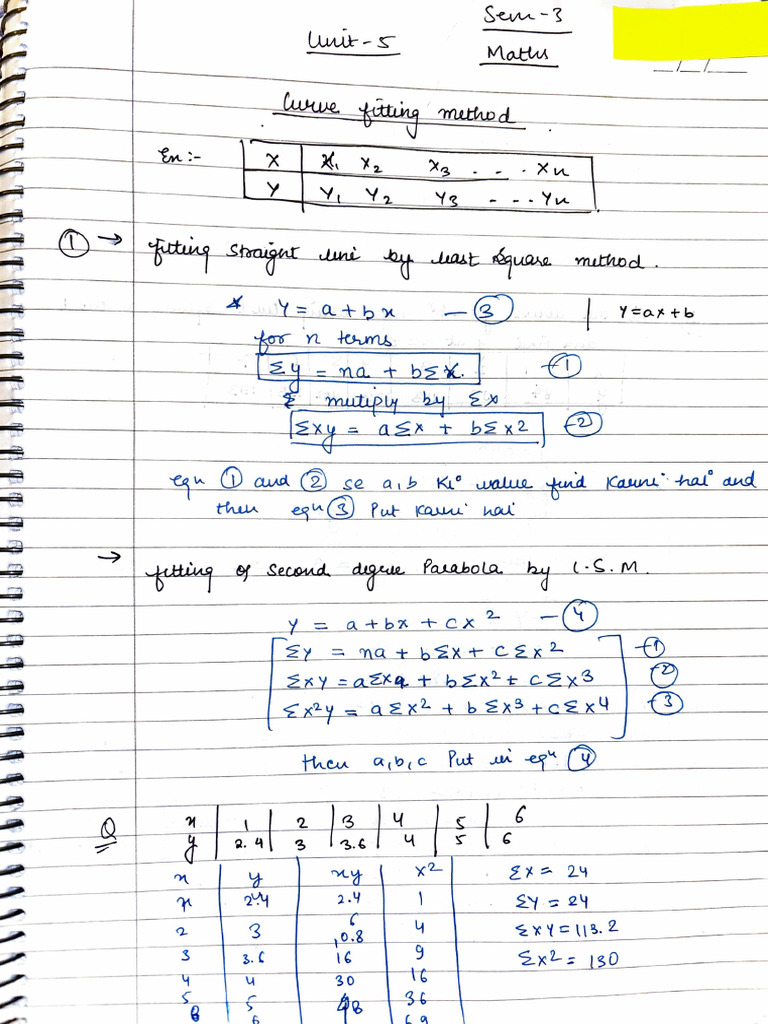 Sem-3
Unit-5
Maths
Curve fitting method
En:-
X X1 X2 X3 . . . Xn
Y Y1 Y2 Y3 - - .. Yn
① → fitting straight line by least square method.
* Y = a + bx — ③ | Y=ax+b
for n terms
Σy = na + bΣx. —①
& mutiply by Σx
Σxy = aΣx + bΣx2 —②
eqn ① and ② se a,b Ki value find Karni hai and
then eqn ③ Put Karni hai
→ fitting of second degree Parabola by L.S.M.
Y = a+bx + cx2 —④
ΣY = na + bΣx + cΣx2 —①
ΣXY = aΣx + bΣx2 + cΣx3 —②
Σx2Y = aΣx2 + bΣx3 + cΣx4 —③
then a,b,c Put in eqn ④
Q x 1 2 3 4 5 6
y 2.4 3 3.6 4 5 6
x y xy x2 ΣX = 24
2.4 2.4 1 ΣY = 24
2 3 6 4 ΣXY = 113.2
3 3.6 10.8 9 ΣX2 = 130
4 4 16 16
5 5 30 36
6 6 48 69